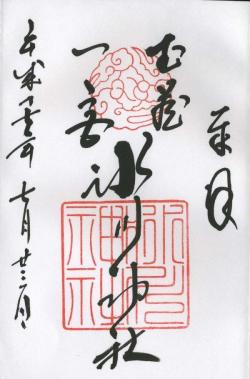 奉拝
武蔵
一宮
氷川神社
平成二十五年七月廿三日